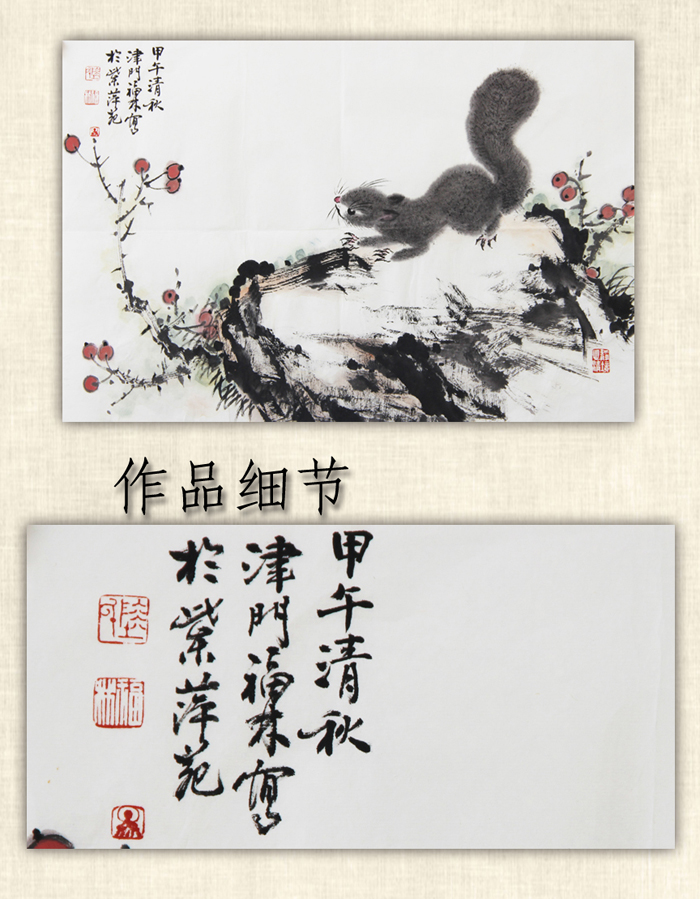 甲午清秋
津門福林寫
於紫萍苑
作品细节
甲午清秋
津門福林寫
於紫萍苑
福林